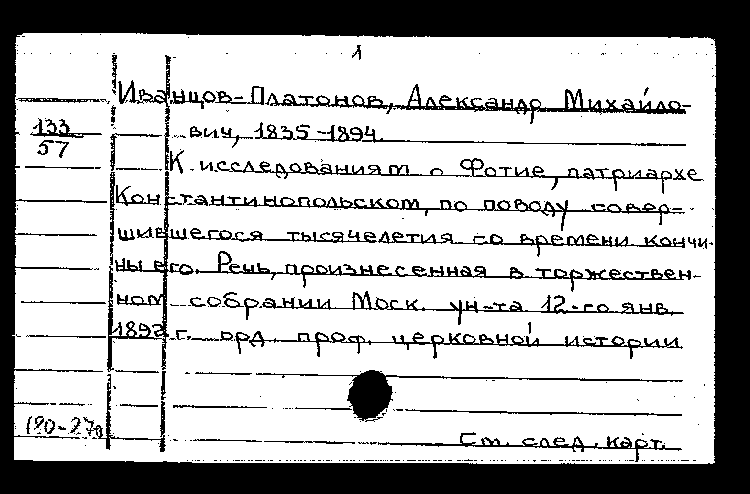 1
Иванцов-Платонов, Александр Михайло-
133
57
вич, 1835-1894.
К исследованиям о Фотие, патриархе
Константинопольском, по поводу совер-
шившегося тысячелетия со времени кончи-
ны его. Речь, произнесенная в торжествен-
ном собрании Моск. ун-та 12-го янв.
1892 г. орд. проф. церковной истории
См. след. карт.